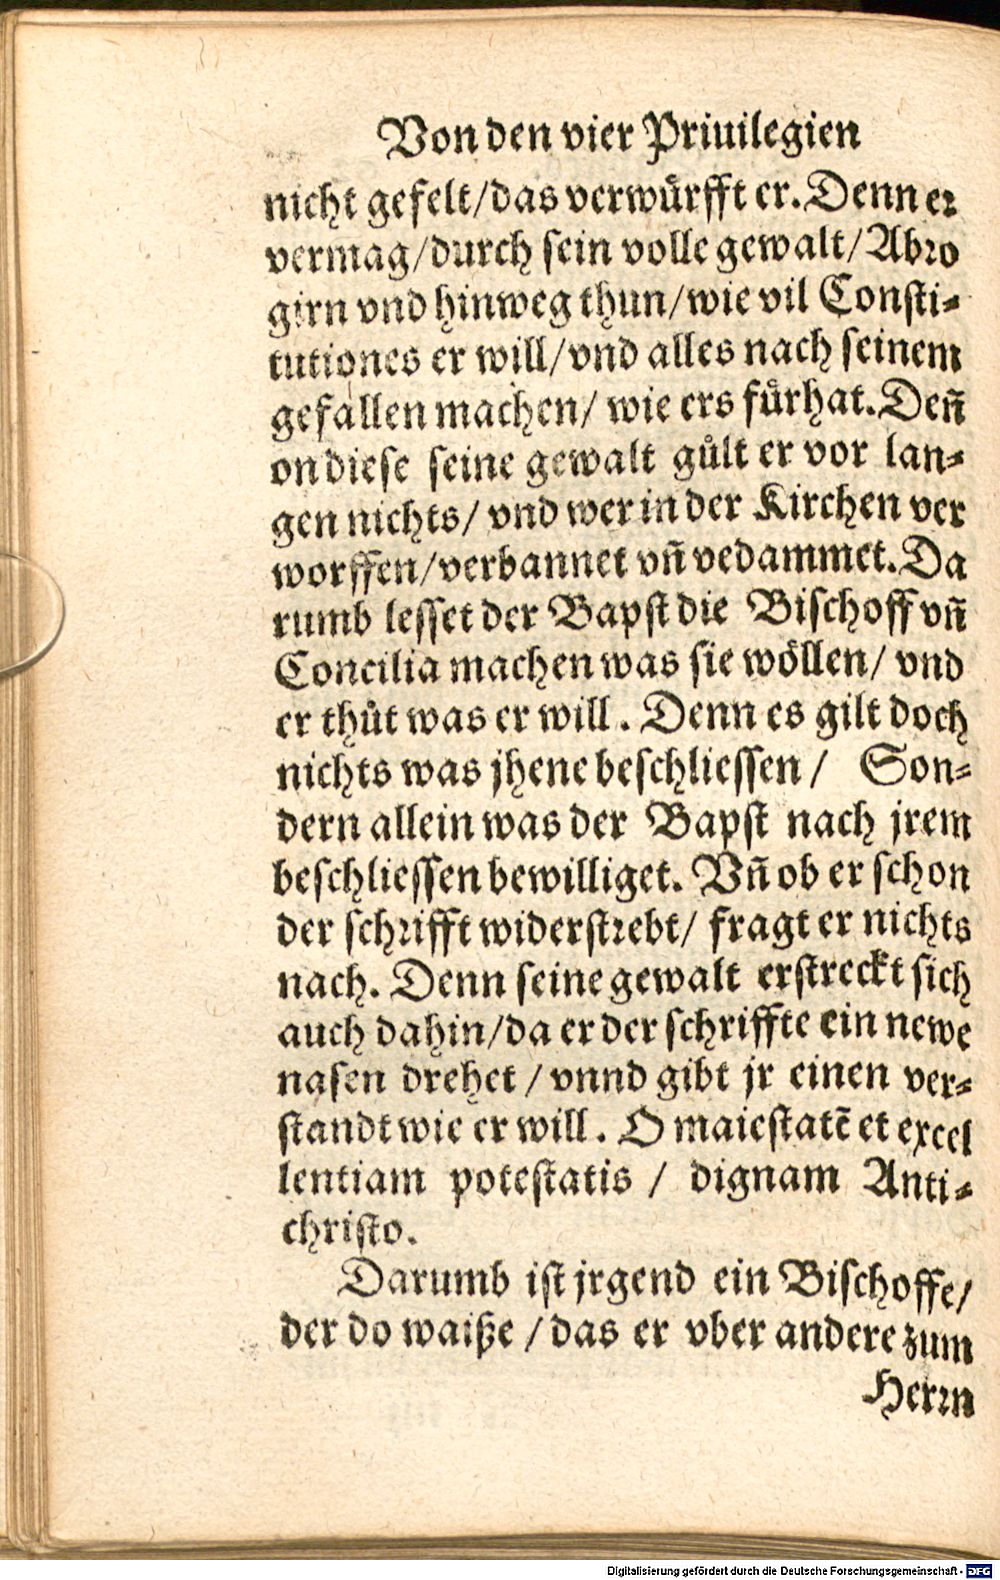 Von den vier Priuilegien
nicht gefelt/das verwuͤrfft er. Denn er
vermag/durch sein volle gewalt/Abro
girn vnd hinweg thun/wie vil Consti-
tutiones er will/vnd alles nach seinem
gefallen machen/ wie ers fuͤrhat. Deñ
on diese seine gewalt guͤlt er vor lan-
gen nichts/ vnd wer in der Kirchen ver
worffen/verbannet vñ vedammet. Da
rumb lesset der Bapst die Bischoff vñ
Concilia machen was sie woͤllen/ vnd
er thuͤt was er will. Denn es gilt doch
nichts was jhene beschliessen/ Son-
dern allein was der Bapst nach jrem
beschliessen bewilliget. Vñ ob er schon
der schrifft widerstrebt/ fragt er nichts
nach. Denn seine gewalt erstreckt sich
auch dahin/da er der schriffte ein newe
nasen drehet/ vnnd gibt jr einen ver-
standt wie er will. O maiestatẽ et excel
lentiam potestatis/ dignam Anti-
christo.
Darumb ist jrgend ein Bischoffe/
der do waiße/das er vber andere zum
Herrn
Digitalisierung gefördert durch die Deutsche Forschungsgemeinschaft - DFG